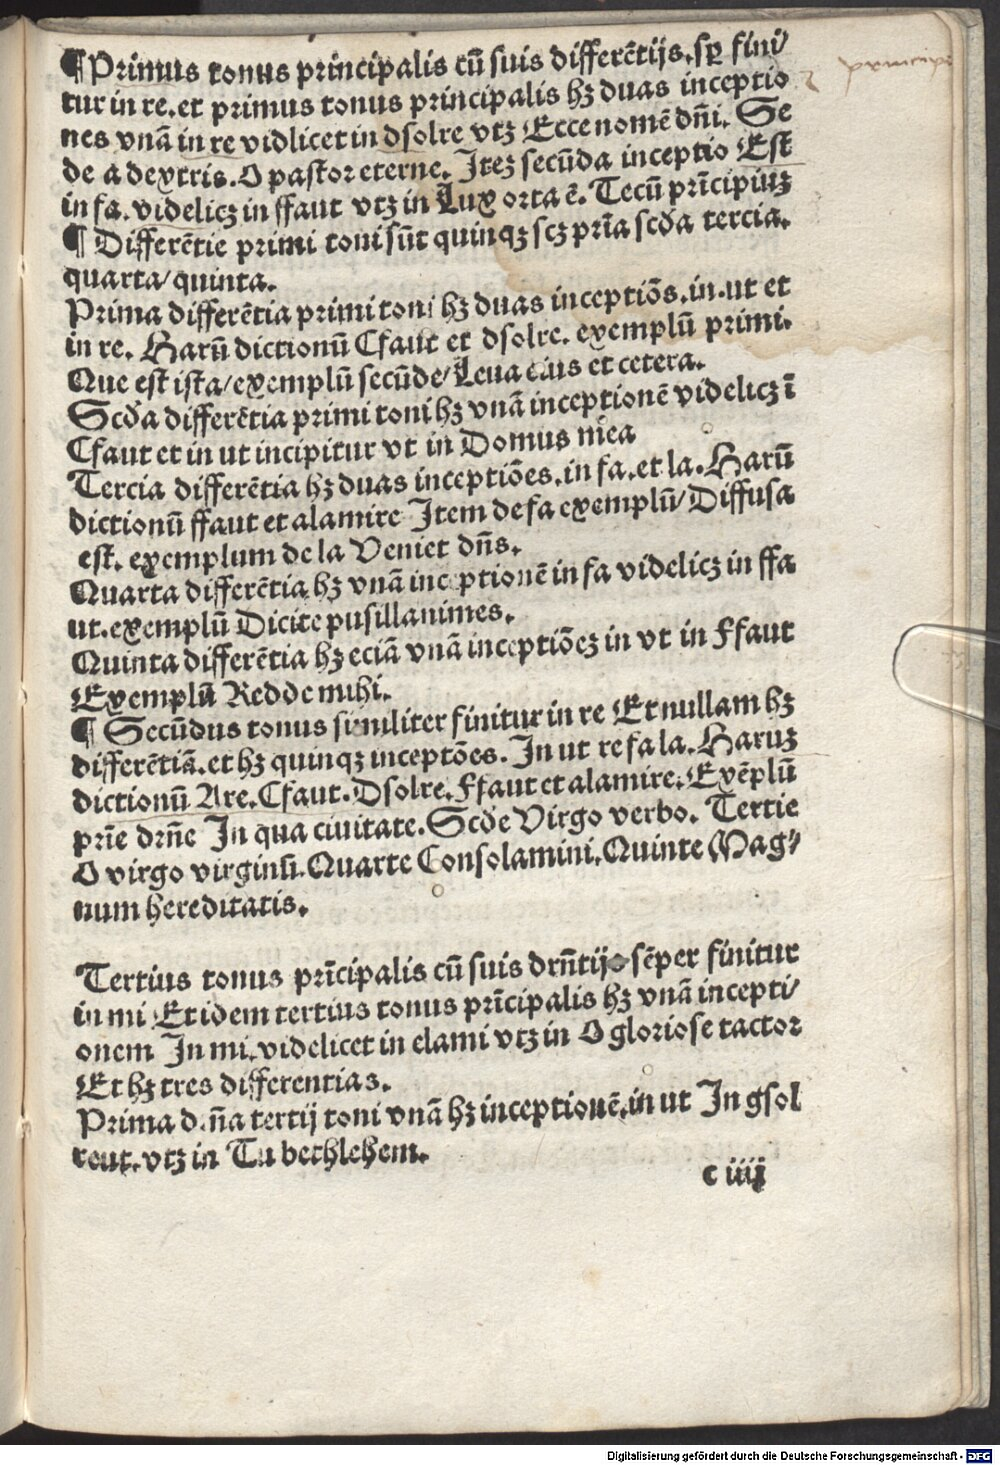 ¶ Primus tonus principalis cū suis differētijs. sꝑ fini⸗
tur in re. et primus tonus principalis hꝫ duas inceptio
nes vnā in re vidlicet in dsolre vtꝫ Ecce nomē dn̄i. Se
de a dextris. O pastor eterne. Iteꝫ secūda inceptio Est
in fa. videlicꝫ in ffaut vtꝫ in Lux orta ē. Tecū prīcipiuꝫ
¶ Differētie primi toni sūt quinqꝫ scꝫ prīa scd̄a tercia.
quarta/quinta.
Prima differētia primi toni hꝫ duas inceptiōs. in. ut et
in re. Harū dictionū Cfaut et dsolre. exemplū primi.
Que est ista/exemplū secūde/Leua eius et cetera.
Scd̄a differētia primi toni hꝫ vnā inceptionē videlicꝫ ī
Cfaut et in ut incipitur vt in Domus mea
Tercia differētia hꝫ duas inceptiōes. in fa. et la. Harū
dictionū ffaut et alamire Item de fa exemplū/Diffusa
est. exemplum de la Veniet dn̄s.
Quarta differētia hꝫ vnā inceptionē in fa videlicꝫ in ffa
ut. exemplū Dicite pusillanimes.
Quinta differētia hꝫ eciā vnā inceptiōeꝫ in vt in Ffaut
Exemplū Redde mihi.
¶ Secūdus tonus similiter finitur in re Et nullam hꝫ
differētiā. et hꝫ quinqꝫ inceptōes. In ut re fa la. Haruꝫ
dictionū Are. Cfaut. Dsolre. Ffaut et alamire. Exēplū
prīe drn̄e In qua ciuitate. Scd̄e Virgo verbo. Tertie
O virgo virginū. Quarte Consolamini. Quinte Mag⸗
num hereditatis.
Tertius tonus prīcipalis cū suis drn̄tijs sēper finitur
in mi Et idem tertius tonus prīcipalis hꝫ vnā incepti⸗
onem In mi. videlicet in elami vtꝫ in O gloriose tactor
Et hꝫ tres differentias.
Prima d.n̄a tertij toni vnā hꝫ inceptionē. in ut In gsol
reut. vtꝫ in Tu bethlehem.
c iiij
Digitalisierung gefördert durch die Deutsche Forschungsgemeinschaft - DFG